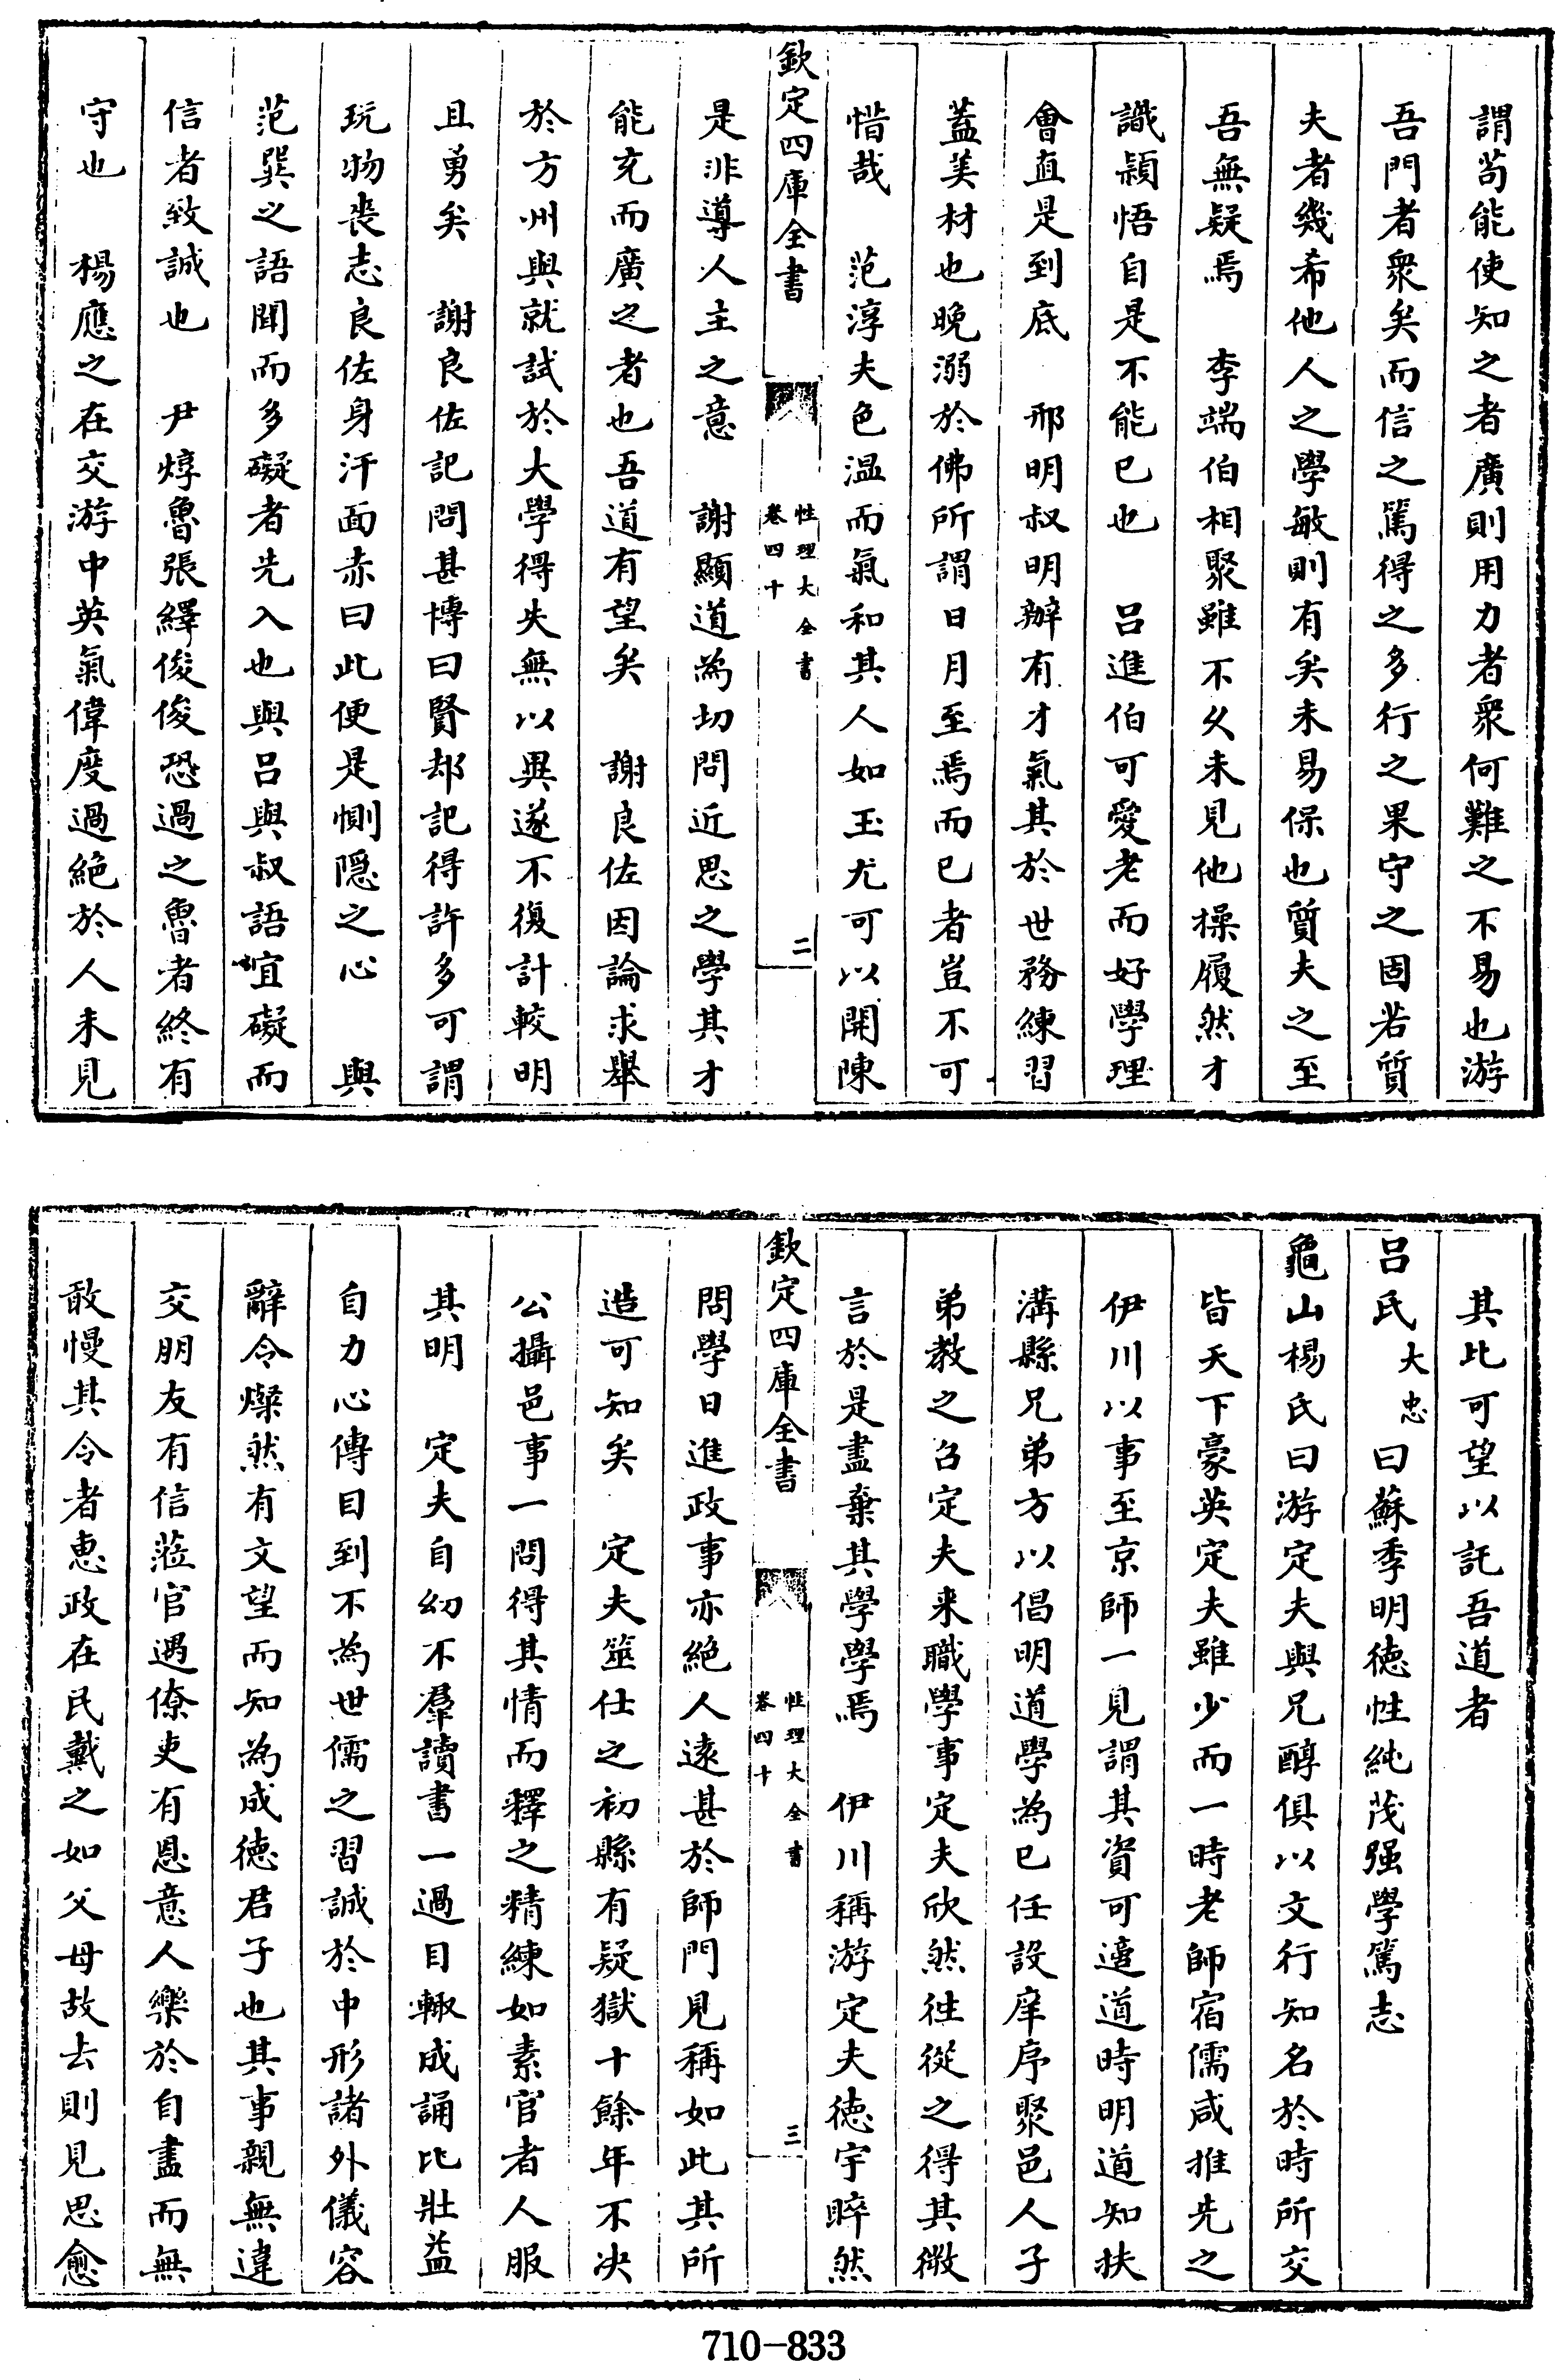 謂苟能使知之者廣則用力者衆何難之不易也游
吾門者衆矣而信之篤得之多行之果守之固若質
夫者幾希他人之學敏則有矣未易保也質夫之至
吾無疑焉　李端伯相聚雖不久未見他操履然才
識穎悟自是不能已也　呂進伯可愛老而好學理
會直是到底　邢明叔明辦有才氣其於世務練習
蓋美材也晚溺於佛所謂日月至焉而已者豈不可
惜哉　范淳夫色温而氣和其人如玉尤可以開陳
欽定四庫全書
性理大全書
卷四十
二
是非導人主之意　謝顯道為切問近思之學其才
能充而廣之者也吾道有望矣　謝良佐因論求舉
於方州與就試於大學得失無以異遂不復計較明
且勇矣　謝良佐記問甚博曰賢却記得許多可謂
玩物喪志良佐身汗面赤曰此便是惻隠之心　與
范巽之語聞而多礙者先入也與呂與叔語宜礙而
信者致誠也　尹焞魯張繹俊俊恐過之魯者終有
守也　楊應之在交游中英氣偉度過絶於人未見
其比可望以託吾道者
呂氏大忠曰蘇季明徳性純茂强學篤志
龜山楊氏曰游定夫與兄醇俱以文行知名於時所交
皆天下豪英定夫雖少而一時老師宿儒咸推先之
伊川以事至京師一見謂其資可適道時明道知扶
溝縣兄弟方以倡明道學為已任設庠序聚邑人子
弟教之召定夫来職學事定夫欣然往從之得其微
言於是盡棄其學學焉　伊川稱游定夫徳宇睟然
欽定四庫全書
性理大全書
卷四十
三
問學日進政事亦絶人遠甚於師門見稱如此其所
造可知矣　定夫筮仕之初縣有疑獄十餘年不决
公攝邑事一問得其情而釋之精練如素官者人服
其明　定夫自㓜不羣讀書一過目輙成誦比壯益
自力心傳目到不為世儒之習誠於中形諸外儀容
辭令燦然有文望而知為成徳君子也其事親無違
交朋友有信涖官遇僚吏有恩意人樂於自盡而無
敢慢其令者惠政在民戴之如父母故去則見思愈
710-833